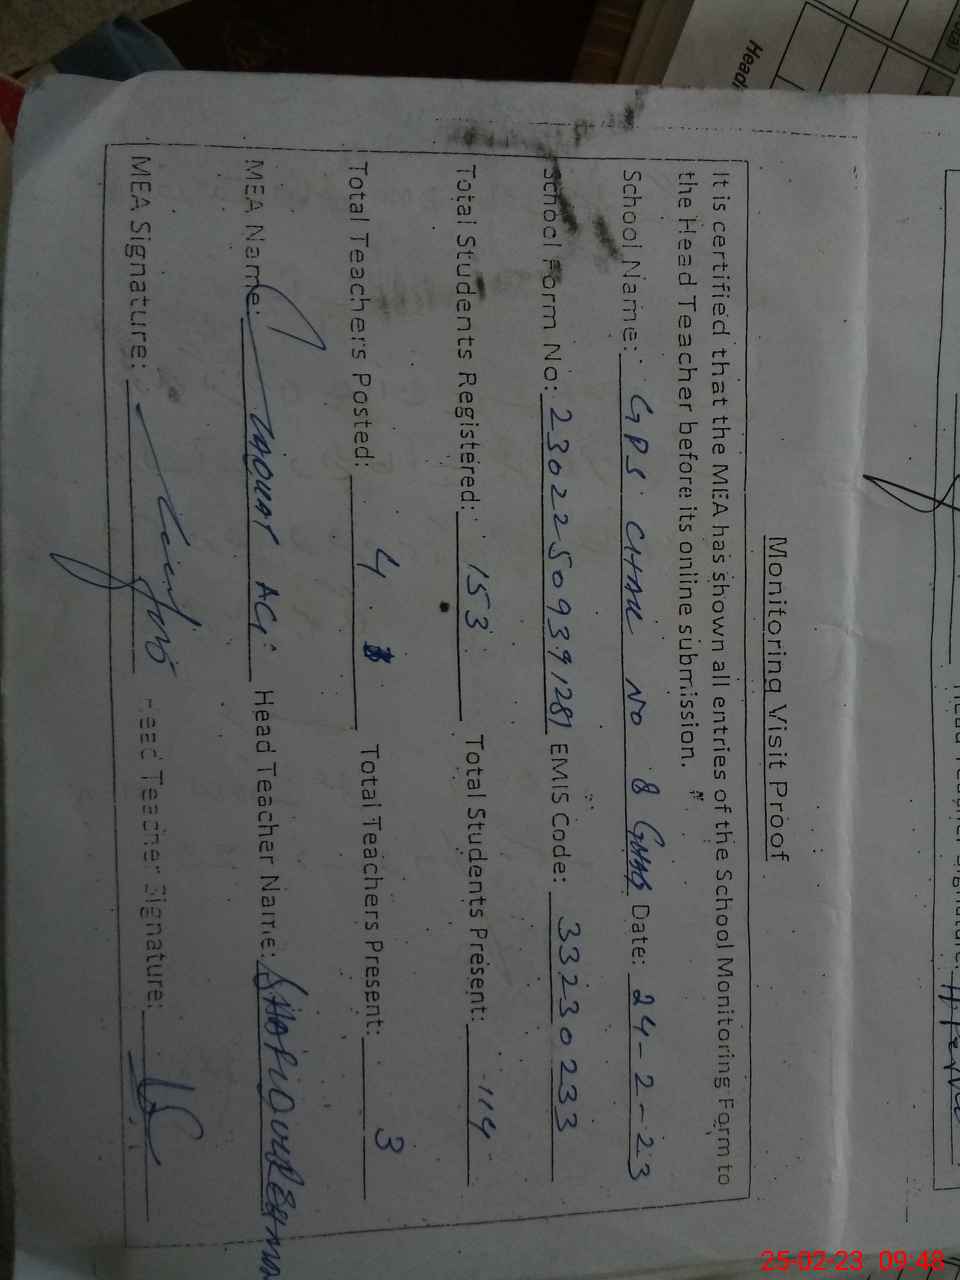 Monitoring Visit Proof
It is certified that the MEA has shown all entries of the School Monitoring Form to
the Head Teacher before its online submission.
School Name: GPS CHAK NO 8 Date: 24-2-23
School Form No: 23022509391281 EMIS Code: 33230233
Total Students Registered: 153 Total Students Present: 114
Total Teachers Posted: 4 Total Teachers Present: 3
MEA Name: Head Teacher Name:
MEA Signature: Head Teacher Signature:
25-02-23 09:48